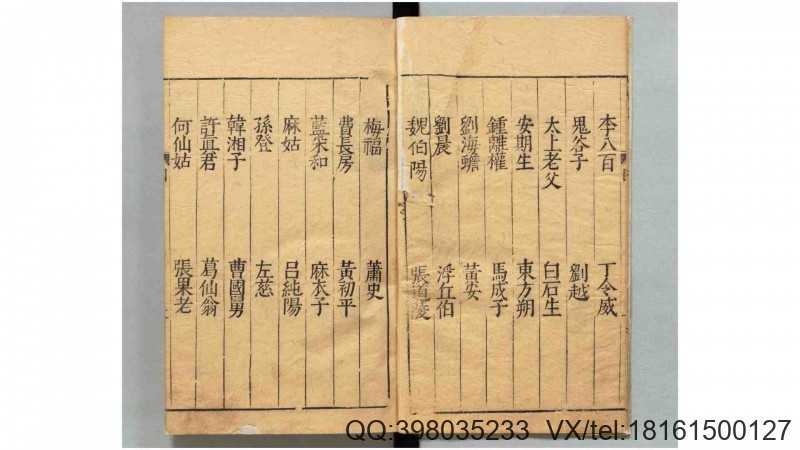 李八百 丁令威
鬼谷子 劉越
太上老父 白石生
安期生 東方朔
鍾離權 馬成子
劉海蟾 黃安
劉晨 浮丘伯
魏伯陽 張道陵
梅福 蕭史
費長房 黃初平
藍采和 麻衣子
麻姑 呂純陽
孫登 左慈
韓湘子 曹國舅
許眞君 葛仙翁
何仙姑 張果老
QQ:398035233 VX/tel:18161500127